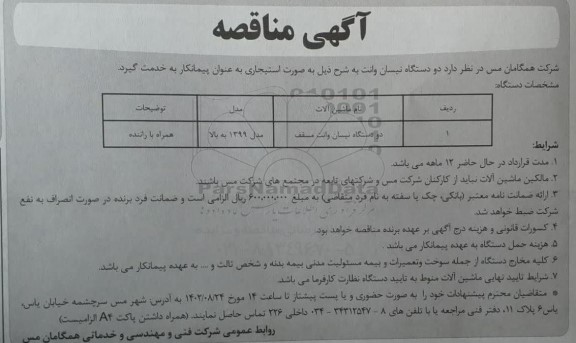 آگهی مناقصه
شرکت همگامان مس در نظر دارد دو دستگاه نیسان وانت به شرح ذیل به صورت استیجاری به عنوان پیمانکار به خدمت گیرد.
مشخصات دستگاه:
ردیف نام ماشین آلات مدل توضیحات
۱ دو دستگاه نیسان وانت مسقف مدل ۱۳۹۹ به بالا همراه با راننده
شرایط:
۱. مدت قرارداد در حال حاضر ۱۲ ماهه می باشد.
۲. مالکین ماشین آلات نباید از کارکنان شرکت مس و شرکتهای تابعه در مجتمع های شرکت مس باشند.
ParsNamadData
۳. ارائه ضمانت نامه معتبر (بانکی، چک یا سفته به نام فرد متقاضی) به مبلغ ۶۰۰,۰۰۰,۰۰۰ ریال الزامی است و ضمانت فرد برنده در صورت انصراف به نفع
شرکت ضبط خواهد شد.
۴. کسورات قانونی و هزینه درج آگهی بر عهده برنده مناقصه خواهد بود.
۵. هزینه حمل دستگاه به عهده پیمانکار می باشد.
۶. کلیه مخارج دستگاه از جمله سوخت وتعمیرات و بیمه مسئولیت مدنی بیمه بدنه و شخص ثالث و ... به عهده پیمانکار می باشد.
۷. شرایط تایید نهایی ماشین آلات منوط به تایید دستگاه نظارت کارفرما می باشد.
* متقاضیان محترم پیشنهادات خود را به صورت حضوری و یا پست پیشتاز تا ساعت ۱۴ مورخ ۱۴۰۲/۰۸/۲۴ به آدرس: شهر مس سرچشمه خیابان یاس،
یاس۶ پلاک ۱۱، دفتر فنی مراجعه یا با تلفن های ۸ - ۳۴۳۱۲۵۴۷ - ۰۳۴ داخلی ۲۲۶ تماس حاصل نمایند. (همراه داشتن پاکت A۴ الزامیست)
روابط عمومی شرکت فنی و مهندسی و خدماتی همگامان مس